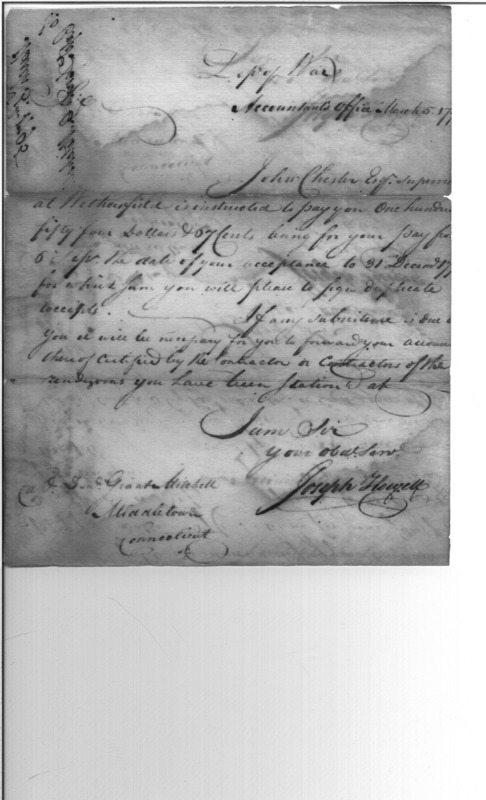 Dep of War
Accountants Office March 5. 17
John Chester Esqr. Supervis
at Wethersfield is instructed to pay you One hundre
fifty four Dollars & 67 Cents being for your pay fro
the date of your acceptance to 31 Decem 17
for which sum you will please to sign duplicate
receipts.
If any subsistence is due
you it will be necessary for you to forward your accoun
thereof certified by the Contractor or Contractors of the
rendezvous you have been stationed at
I am Sir
your obdt. Servt.
Joseph Howell
Mitchell
Middletown
Connecticut